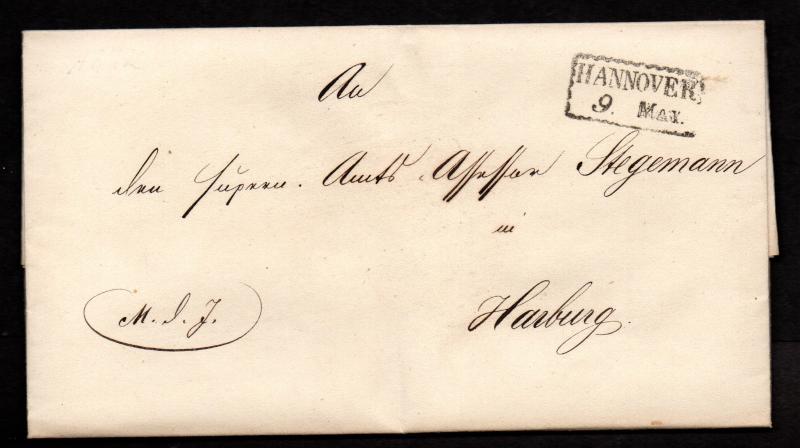 HANNOVER
9. MAI.
An
den supern. Amts Assessor Stegemann
in
Harburg.
M. d. J.